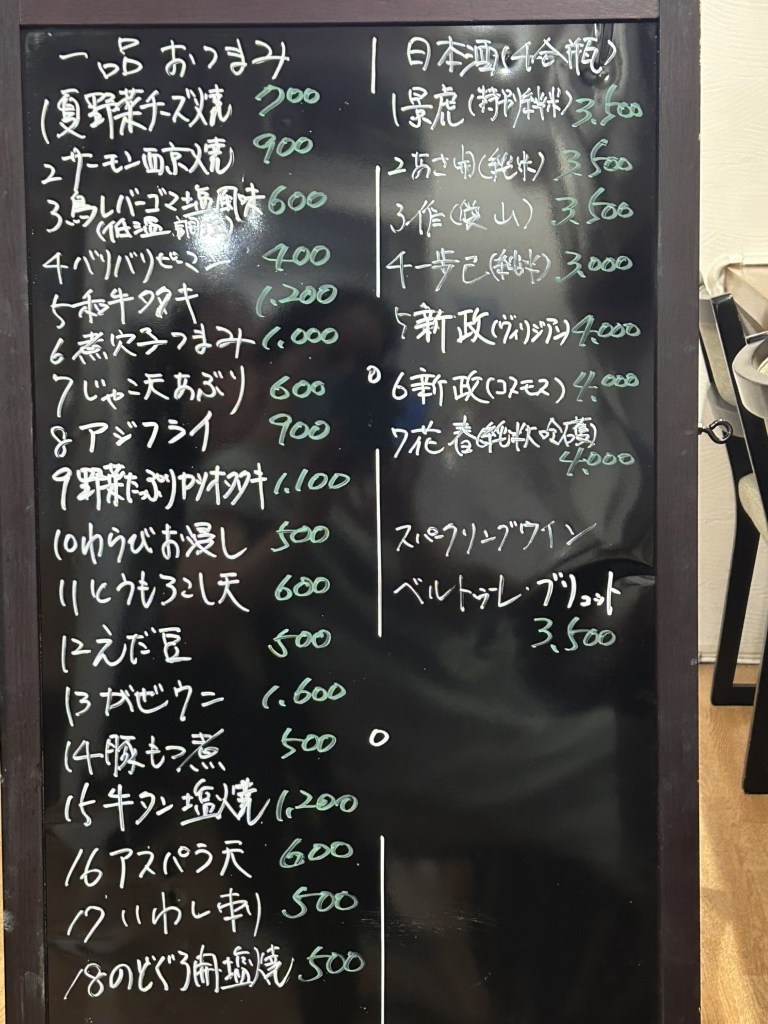 一品 おつまみ
1夏野菜チーズ焼 700
2サーモン西京焼 900
3鳥レバーゴマ塩風味 600
(低温調理)
4バリバリピーマン 400
5和牛タタキ 1.200
6煮穴子つまみ 1.000
7じゃこ天あぶり 600
8アジフライ 900
9野菜たっぷりカツオタタキ 1.100
10わらびお浸し 500
11とうもろこし天 600
12えだ豆 500
13がぜウニ 1.600
14豚もつ煮 500
15牛タン塩焼 1.200
16アスパラ天 600
17いわし刺 500
18のどぐろ開塩焼 500
日本酒(4合瓶)
1景虎(特別純米) 3.500
2あさ開(純米) 3.500
3作( 山) 3.500
4一歩己(純米) 3.000
5新政(ヴィリジアン) 4.000
6新政(コスモス) 4.000
7花春(純米大吟醸)
4.000
スパークリングワイン
ベルトゥーレ・ブリュット
3.500